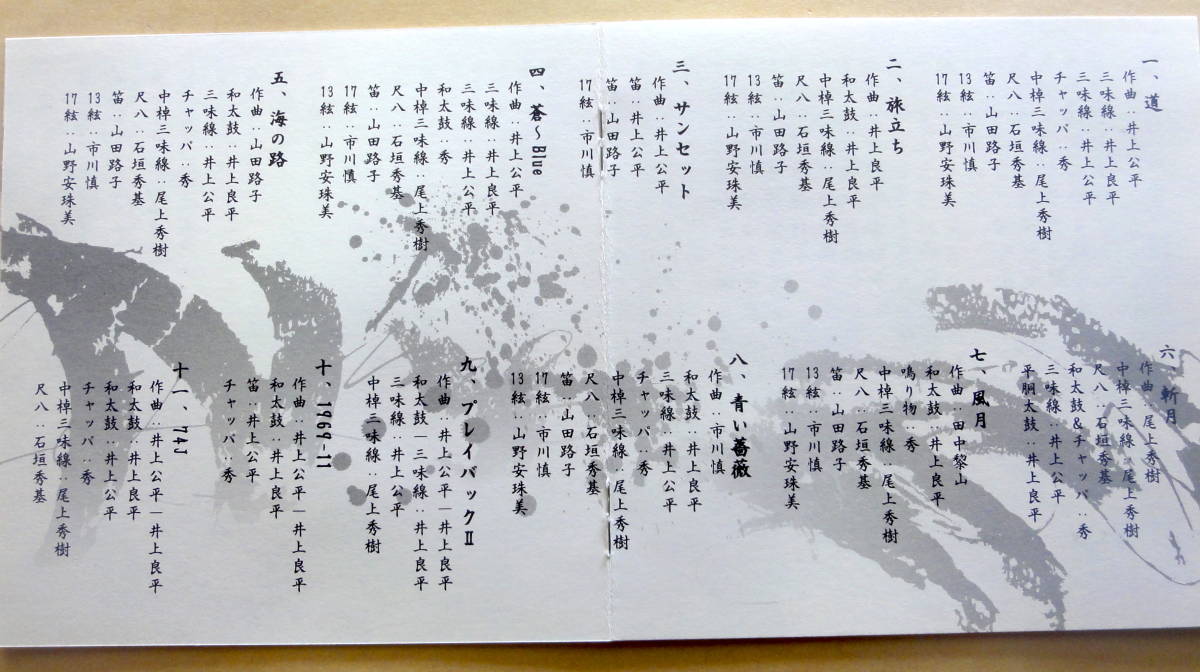 一、道
作曲：井上公平
三味線：井上良平
三味線：井上公平
チャッパ：秀
中棹三味線：尾上秀樹
尺八：石垣秀基
笛：山田路子
13絃：市川慎
17絃：山野安珠美
二、旅立ち
作曲：井上良平
和太鼓：井上良平
中棹三味線：尾上秀樹
尺八：石垣秀基
笛：山田路子
13絃：市川慎
17絃：山野安珠美
三、サンセット
作曲：井上公平
笛：井上公平
笛：山田路子
17絃：市川慎
四、蒼〜Blue
作曲：井上公平
三味線：井上良平
三味線：井上公平
和太鼓：秀
中棹三味線：尾上秀樹
尺八：石垣秀基
笛：山田路子
17絃：市川慎
13絃：山野安珠美
五、海の路
作曲：山田路子
和太鼓：井上良平
三味線：井上公平
チャッパ：秀
中棹三味線：尾上秀樹
尺八：石垣秀基
笛：山田路子
13絃：市川慎
17絃：山野安珠美
六、斬月
作曲：尾上秀樹
中棹三味線：尾上秀樹
尺八：石垣秀基
和太鼓＆チャッパ：秀
三味線：井上公平
平胴太鼓：井上良平
七、風月
作曲：田中黎山
和太鼓：井上良平
鳴り物：秀
中棹三味線：尾上秀樹
尺八：石垣秀基
笛：山田路子
13絃：市川慎
17絃：山野安珠美
八、青い薔薇
作曲：市川慎
和太鼓：井上良平
三味線：井上公平
チャッパ：秀
中棹三味線：尾上秀樹
尺八：石垣秀基
笛：山田路子
17絃：市川慎
13絃：山野安珠美
九、プレイバックⅡ
作曲：井上公平｜井上良平
和太鼓｜三味線：井上良平
三味線：井上公平
中棹三味線：尾上秀樹
十、1969-11
作曲：井上公平｜井上良平
和太鼓：井上良平
笛：井上公平
チャッパ：秀
十一、74J
作曲：井上公平｜井上良平
和太鼓：井上良平
和太鼓：井上公平
チャッパ：秀
中棹三味線：尾上秀樹
尺八：石垣秀基